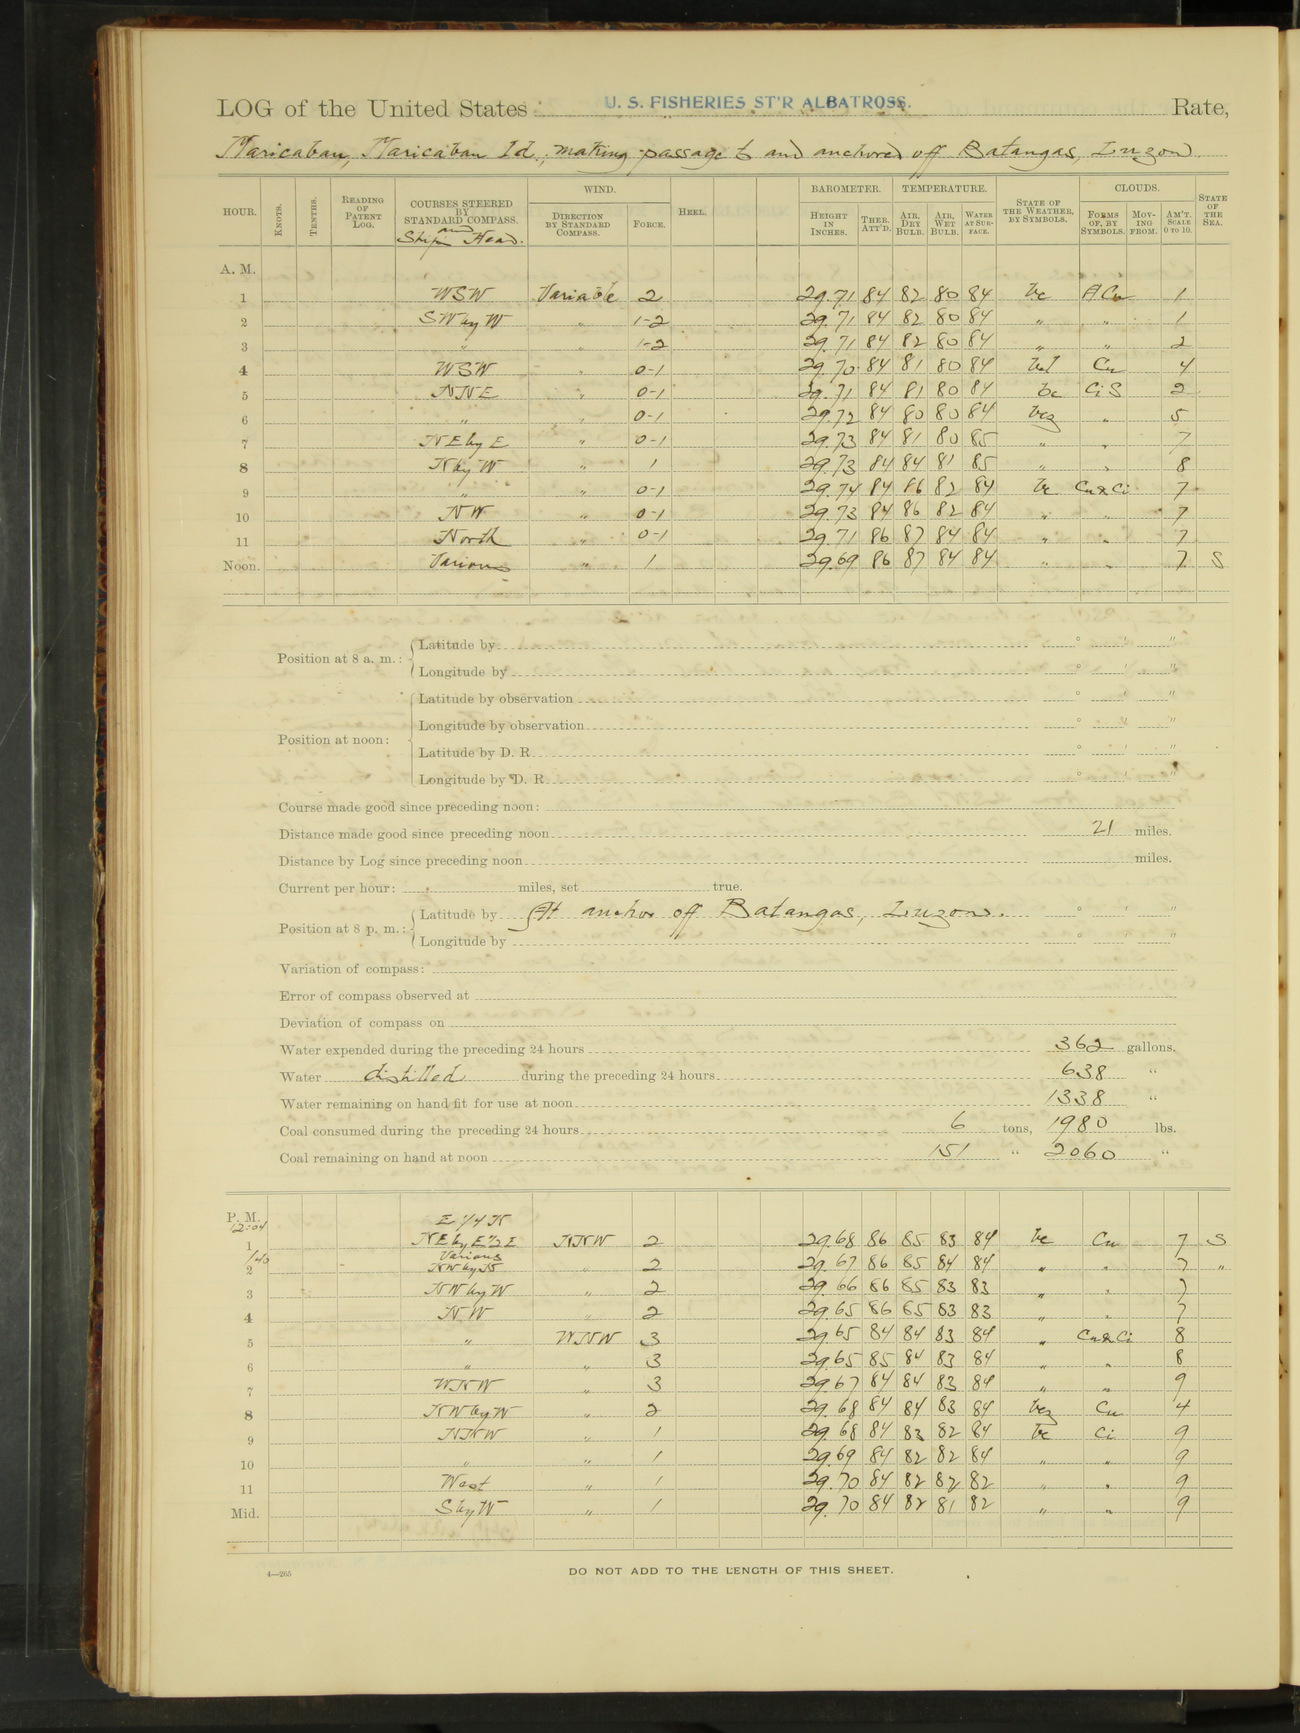 LOG of the United States U. S. FISHERIES ST'R ALBATROSS. Rate,
Maricaban, Maricaban Id., making passage to and anchored off Batangas, Luzon
HOUR. KNOTS. TENTHS. READING OF PATENT LOG. COURSES STEERED BY STANDARD COMPASS. and Ship's Head. WIND. DIRECTION BY STANDARD COMPASS. FORCE. HEEL. BAROMETER. HEIGHT IN INCHES. THER. ATT'D. TEMPERATURE. AIR, DRY BULB. AIR, WET BULB. WATER AT SURFACE. STATE OF THE WEATHER, BY SYMBOLS. CLOUDS. FORMS OF, BY SYMBOLS. MOVING FROM. AM'T. SCALE 0 TO 10. STATE OF THE SEA.
A. M.
1 WSW Variable 2 29.71 84 82 80 84 bc A Cu 1
2 SW by W " 1-2 29.71 84 82 80 84 " " 1
3 " " 1-2 29.71 84 82 80 84 " " 2
4 WSW " 0-1 29.70 84 81 80 84 Cu 4
5 NNE " 0-1 29.71 84 81 80 84 bc Ci S 2
6 " " 0-1 29.72 84 80 80 84 bcz " 5
7 NE by E " 0-1 29.73 84 81 80 85 " " 7
8 N by W " 1 29.73 84 84 81 85 " " 8
9 " " 0-1 29.74 84 86 82 84 bc Cu & Ci 7
10 NW " 0-1 29.73 84 86 82 84 " " 7
11 North " 0-1 29.71 86 87 84 84 " " 7
Noon. Various " 1 29.69 86 87 84 84 " " 7 S
Position at 8 a. m.: Latitude by ° ' "
Longitude by ° ' "
Position at noon: Latitude by observation ° ' "
Longitude by observation ° ' "
Latitude by D. R. ° ' "
Longitude by D. R. ° ' "
Course made good since preceding noon:
Distance made good since preceding noon 21 miles.
Distance by Log since preceding noon miles.
Current per hour: miles, set true.
Position at 8 p. m.: Latitude by At anchor off Batangas, Luzon. ° ' "
Longitude by ° ' "
Variation of compass:
Error of compass observed at
Deviation of compass on
Water expended during the preceding 24 hours 362 gallons.
Water distilled during the preceding 24 hours 638 "
Water remaining on hand fit for use at noon 1338 "
Coal consumed during the preceding 24 hours 6 tons, 1980 lbs.
Coal remaining on hand at noon 151 " 2060 "
P. M.
12:04 E 1/4 N
1 NE by E 1/2 E NNW 2 29.68 86 85 83 84 bc Cu 7 S
1:40 Various
2 NW by N " 2 29.67 86 85 84 84 " " 7 "
3 NW by W " 2 29.66 86 85 83 83 " " 7
4 NW " 2 29.65 86 85 83 83 " " 7
5 " WNW 3 29.65 84 84 83 84 " Cu & Ci 8
6 " " 3 29.65 85 84 83 84 " " 8
7 WNW " 3 29.67 84 84 83 84 " " 9
8 NW by W " 2 29.68 84 84 83 84 bcz Cu 4
9 NNW " 1 29.68 84 83 82 84 bc Ci 9
10 " " 1 29.69 84 82 82 84 " " 9
11 West " 1 29.70 84 82 82 82 " " 9
Mid. S by W " 1 29.70 84 82 81 82 " " 9
4—265
DO NOT ADD TO THE LENGTH OF THIS SHEET.